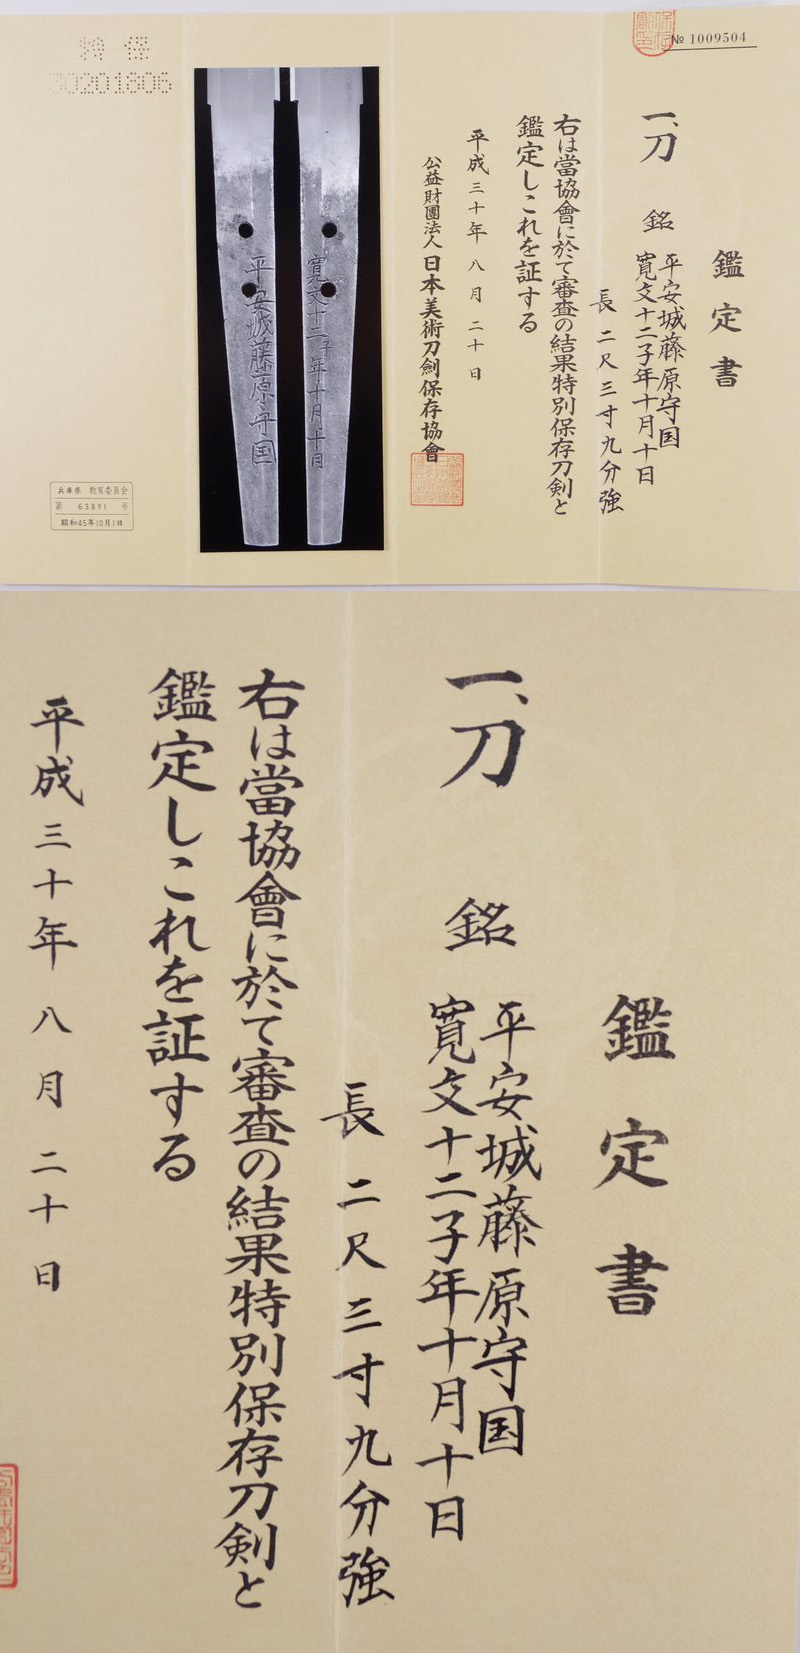 № 1009504
鑑定書
一、刀 銘 平安城藤原守国
寛文十二子年十月十日
長 二尺三寸九分強
右は當協會に於て審査の結果特別保存刀剣と
鑑定しこれを証する
平成三十年八月二十日
公益財團法人日本美術刀劍保存協會
寛文十二子年十月十日
平安城藤原守国
特保
30201806
兵庫県 教育委員会
第 63891 号
昭和45年10月1日
鑑定書
一、刀 銘 平安城藤原守国
寛文十二子年十月十日
長 二尺三寸九分強
右は當協會に於て審査の結果特別保存刀剣と
鑑定しこれを証する
平成三十年八月二十日